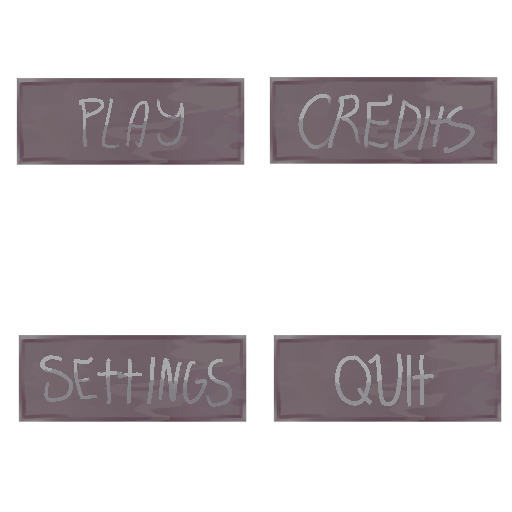 PLAY
CREDITS
SETTINGS
QUIT